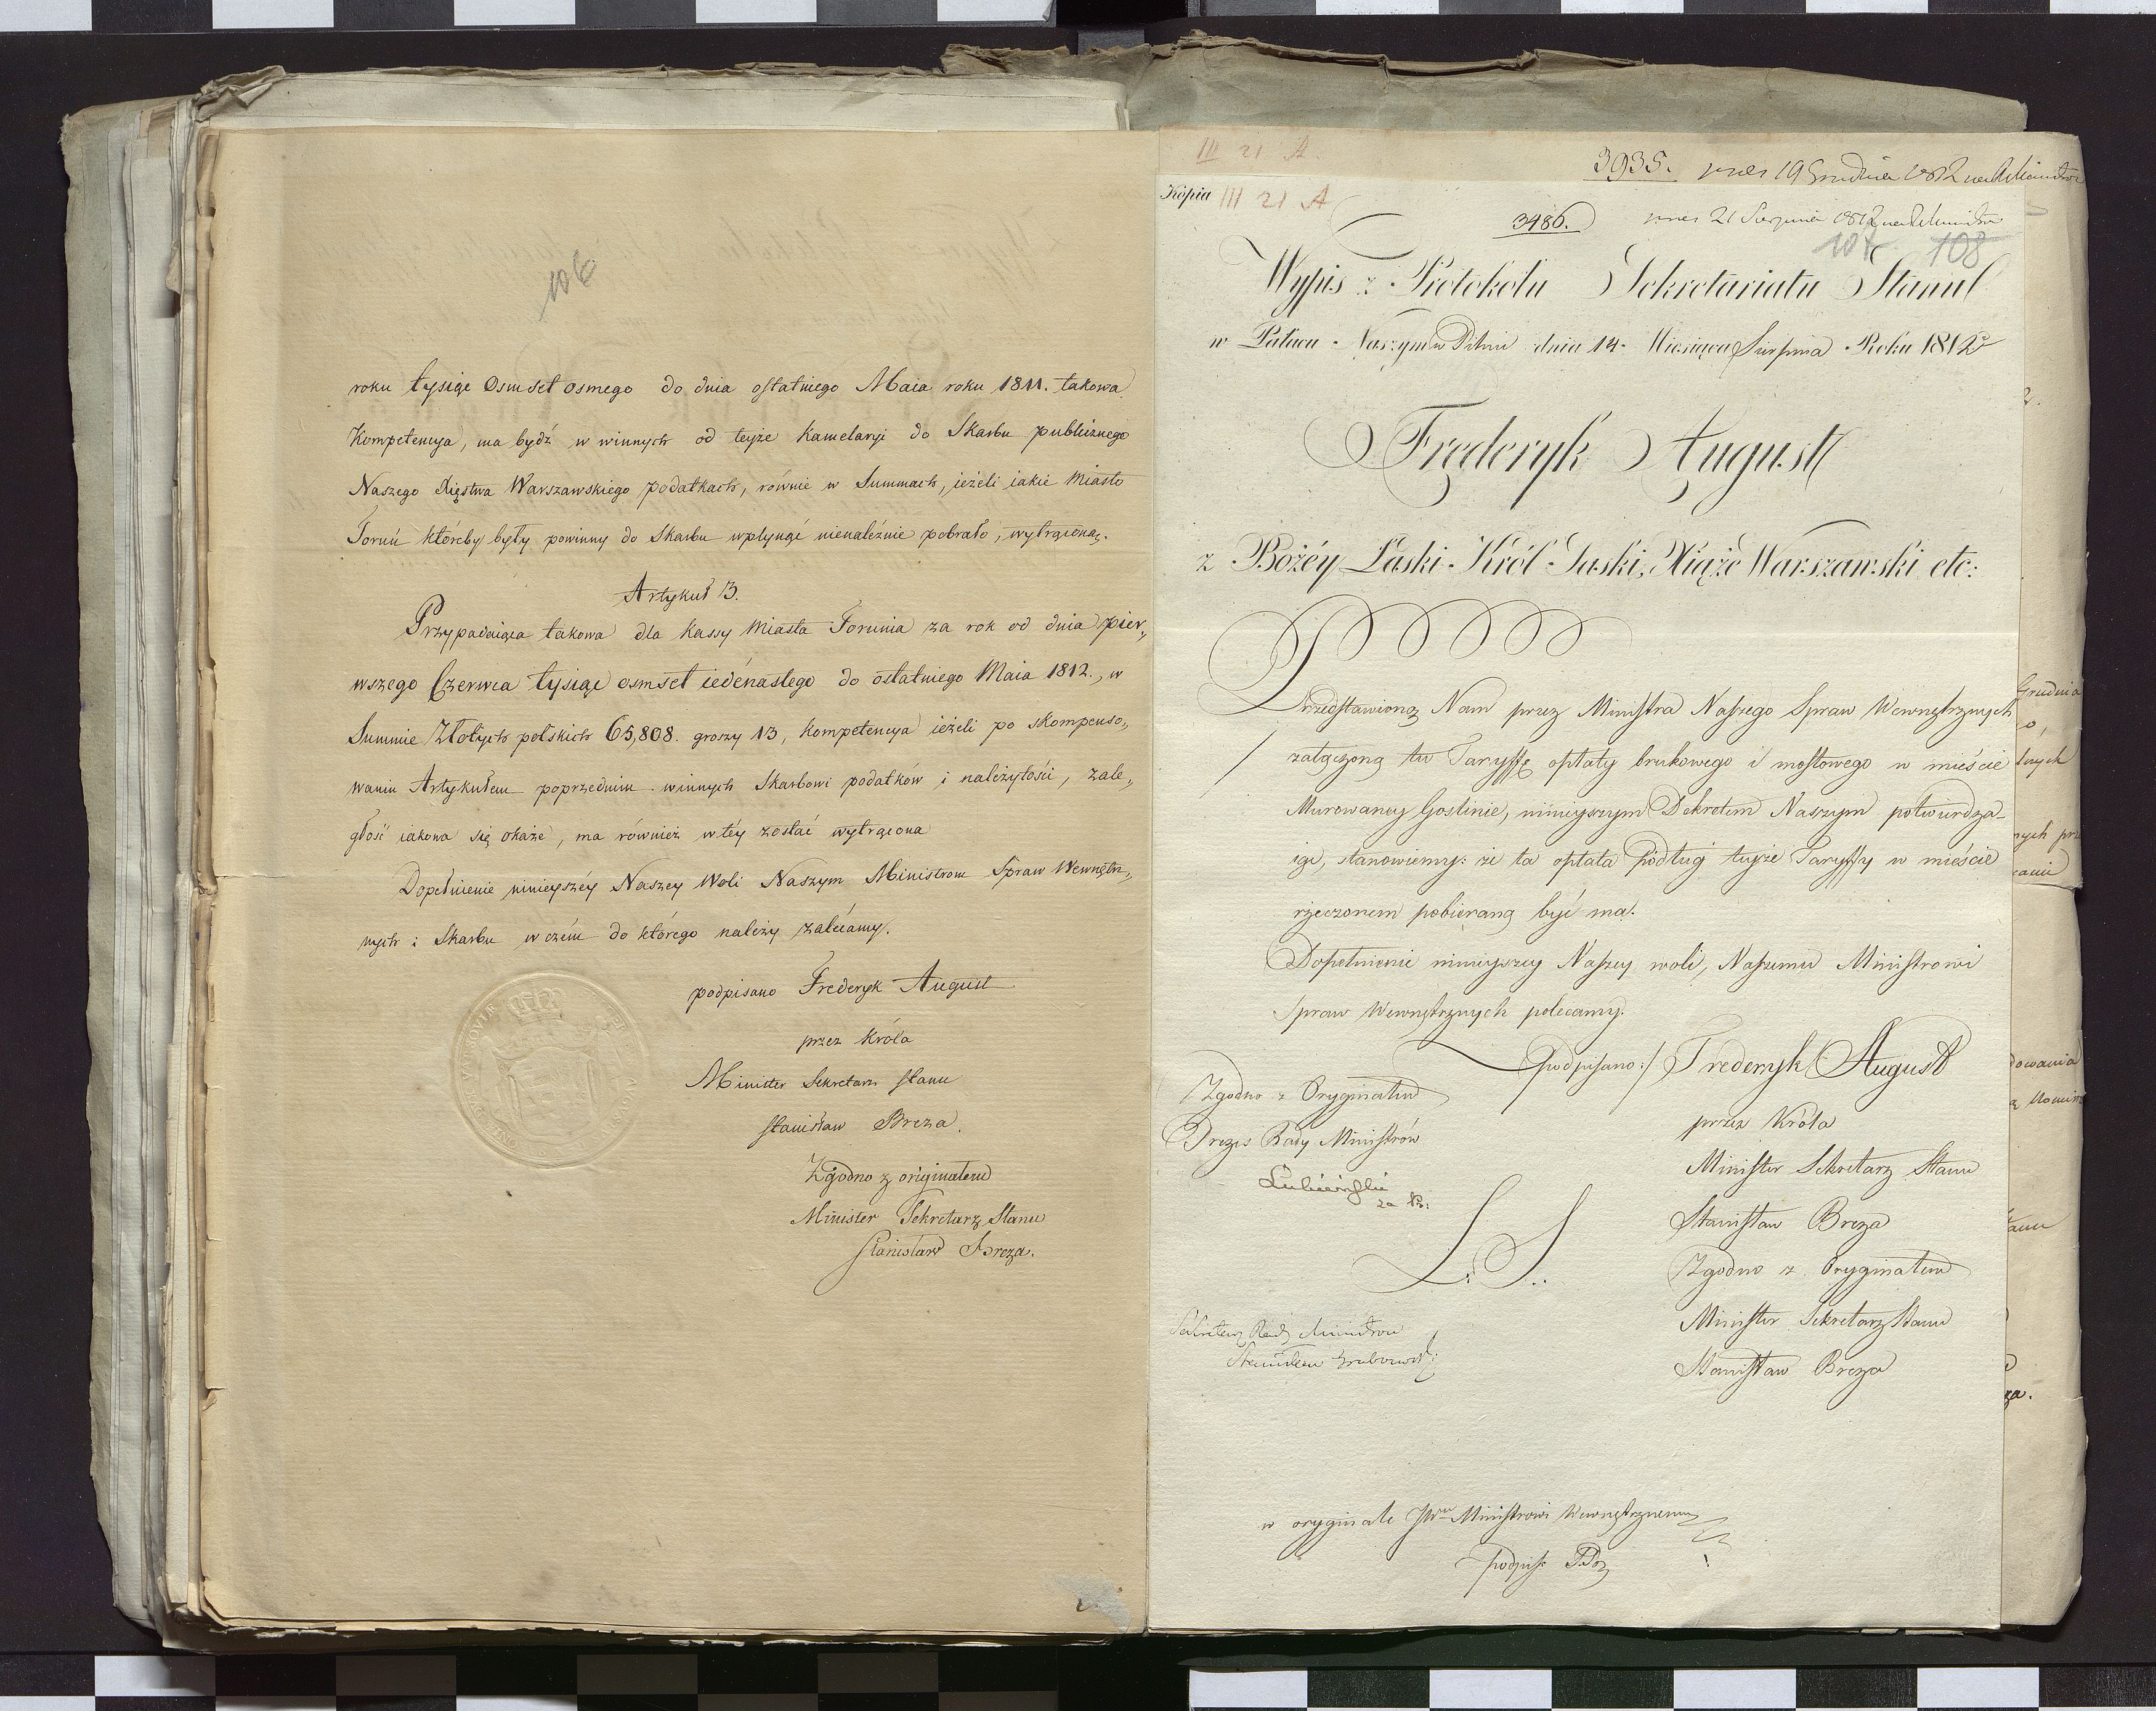 106
roku tysiąc Osmset osmego do dnia ostatniego Maia roku 1811. takowa
Kompetencya, ma bydź w winnych od teyże Kamelaryi do Skarbu publicznego
Naszego Xięstwa Warszawskiego podatkach, równie w Summach, ieżeli iakie Miasto
Toruń któreby były powinny do Skarbu wpłynąć nienależnie pobrało, wytrąconą.
Artykuł 3.
Przypadaiąca takowa dla Kassy Miasta Torunia za rok od dnia pier„
wszego Czerwca tysiąc osmset iedenastego do ostatniego Maia 1812., w
Summie Złotych polskich 65,808. groszy 13, kompetencya ieżeli po skompenso„
waniu Artykułem poprzednim winnych Skarbowi podatków i należytości, zale„
głość iakowa się okaże, ma również w téy zostać wytrącona
Dopełnienie ninieyszéy Naszey Woli Naszym Ministrom Spraw Wewnętrz„
nych i Skarbu w czém do którego należy zalécamy.
podpisano Frederyk August
przez Króla
Minister Sekretarz Stanu
Stanisław Breza.
Zgodno z originałem
Minister Sekretarz Stanu
Stanisław Breza.
III 21 A.
3935. pres 19 Grudnia 1812
Kopia III 21 A
3486. pres 21 Sierpnia 1812
108
Wypis z Protokołu Sekretariatu Stanu
w Pałacu Naszym w Pilnic dnia 14. Miesiąca Sierpnia Roku 1812
Fręderyk August
z Bożéy Łaski Król Saski, Xiążę Warszawski etc:
Przedstawioną Nam przez Ministra Naszego Spraw Wewnętrznych
/ załączoną tu Taryffę opłaty brukowego i mostowego w mieście
Murowaney Goslinie, ninieyszym Dekretem Naszym potwierdza-
iąc, stanowiemy: że ta opłata podług teyże Taryffy w mieście
rzeczonem pobieraną być ma.
Dopełnienie ninieyszey Naszey woli, Naszemu Ministrowi
Spraw Wewnętrznych polecamy.
podpisano:/ Frederyk August
Zgodno z Oryginałem
przez Króla
Prezes Rady Ministrów
Minister Sekretarz Stanu
Łubieński
za P.:
Stanisław Breza
L. S.
Zgodno z Oryginałem
Minister Sekretarz Stanu
Sekretarz Rady Ministrów
Stanisław Grabowski
Stanisław Breza
w oryginale JWmu Ministrowi Wewnętrznemu
podpis: